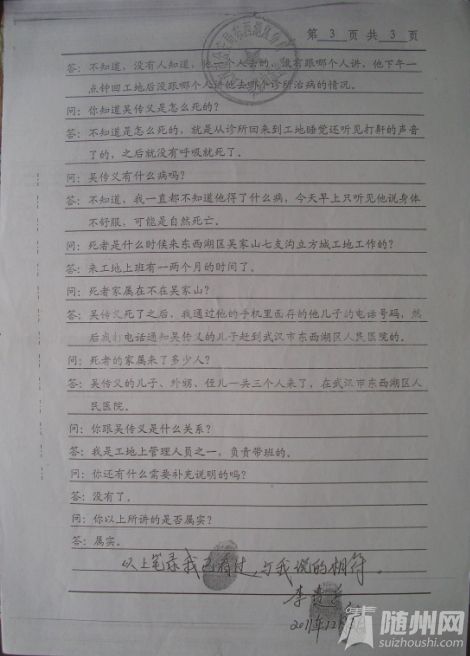 第 3 页 共 3 页
答：不知道，没有人知道，他一个人去的，没有跟哪个人讲，他下午一
点钟回工地后没跟哪个人讲他去哪个诊所治病的情况。
问：你知道吴传义是怎么死的？
答：不知道是怎么死的，就是从诊所回来到工地睡觉还听见打鼾的声音
了的，之后就没有呼吸就死了。
问：吴传义有什么病吗？
答：不知道，我一直都不知道他得了什么病，今天早上只听见他说身体
不舒服，可能是自然死亡。
问：死者是什么时候来东西湖区吴家山七支沟立方城工地工作的？
答：来工地上班有一两个月的时间了。
问：死者家属在不在吴家山？
答：吴传义死了之后，我通过他的手机里面存的他儿子的电话号码，然
后我打电话通知吴传义的儿子赶到武汉市东西湖区人民医院的。
问：死者的家属来了多少人？
答：吴传义的儿子、外甥、侄儿一共三个人来了，在武汉市东西湖区人
民医院。
问：你跟吴传义是什么关系？
答：我是工地上管理人员之一，负责带班的。
问：你还有什么需要补充说明的吗？
答：没有了。
问：你以上所讲的是否属实？
答：属实。
以上笔录我已看过，与我说的相符。
李
2011年12月
随州网
suizhoushi.com